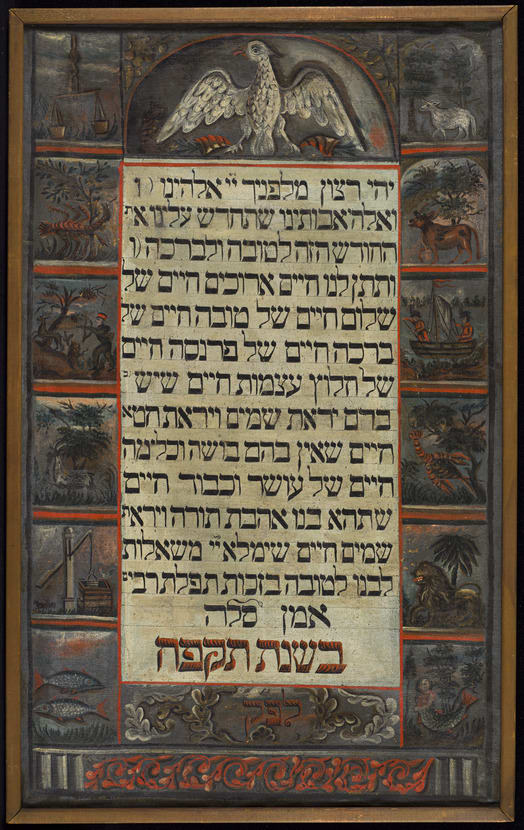 יהי רצון מלפניך יי אלהינו ו
ואלה אבותינו שתחדש עלינו א
החורש הזה לטובה ולברכה ו
ותתן לנו חיים ארוכים חיים של
שלום חיים של טובה חיים של
ברכה חיים של פרנסה חיים
של חלוץ עצמות חיים שיש
בהם יראת שמים ויראת חטא
חיים שאין בהם בושה וכלימה
חיים של עושר וכבוד חיים
שתהא בנו אהבת תורה וירא
שמים חיים שימלא יי משאלות
לבנו לטובה בזכות תפלת רבי
אמן סלה
בשנת תקפח
לפק